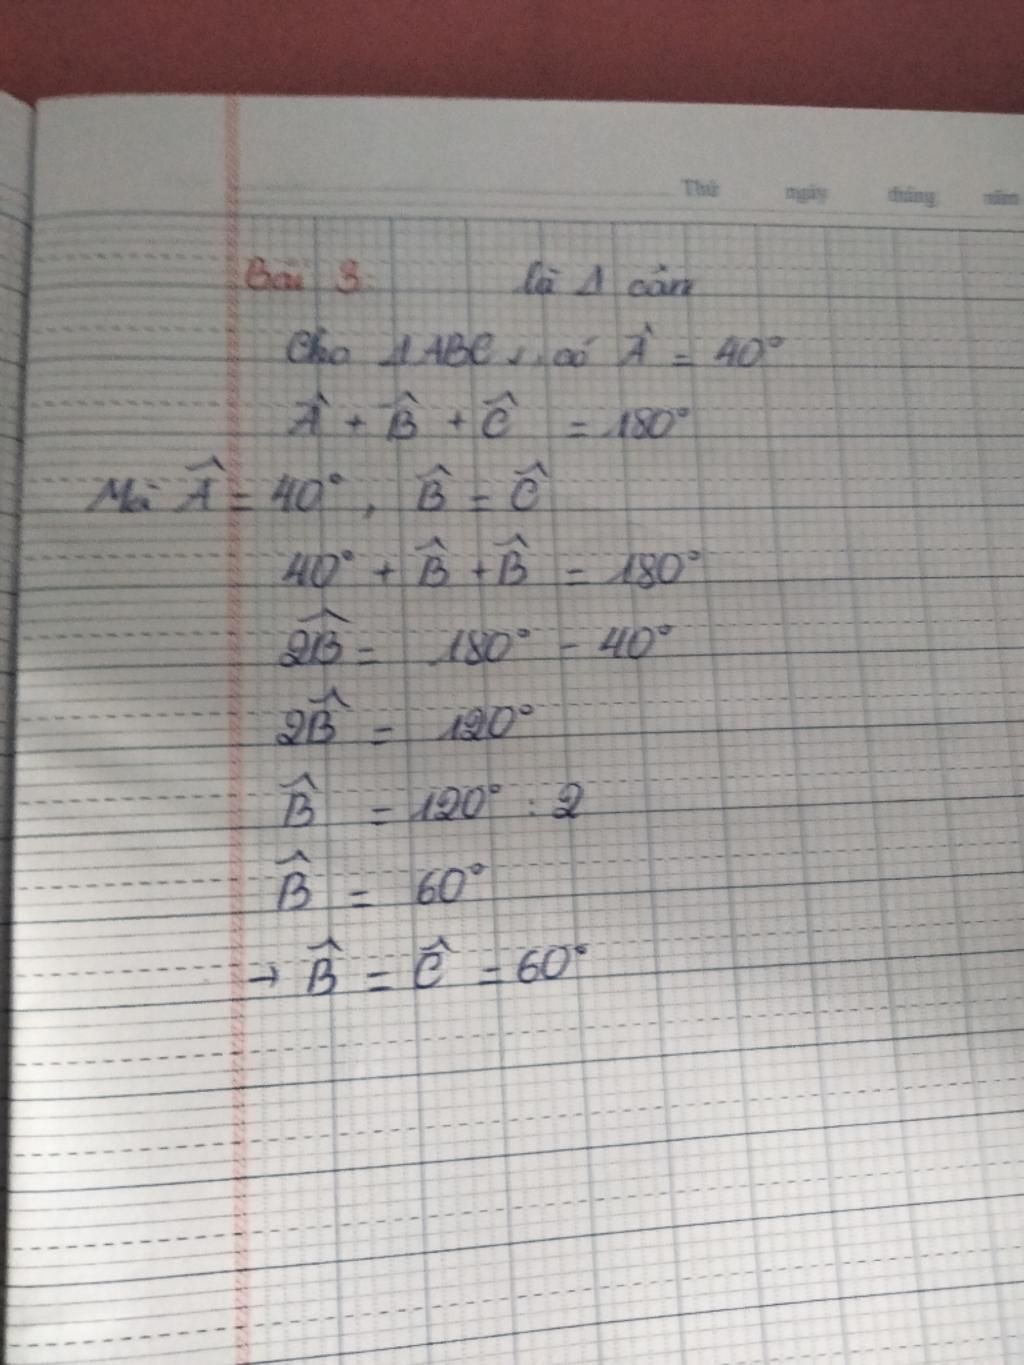 Thứ ngày tháng năm
Bài 3: là Δ cân
Cho ΔABC, có Â = 40°
Â + B̂ + Ĉ = 180°
Mà Â = 40°, B̂ = Ĉ
40° + B̂ + B̂ = 180°
2B̂ = 180° - 40°
2B̂ = 120°
B̂ = 120° : 2
B̂ = 60°
→ B̂ = Ĉ = 60°